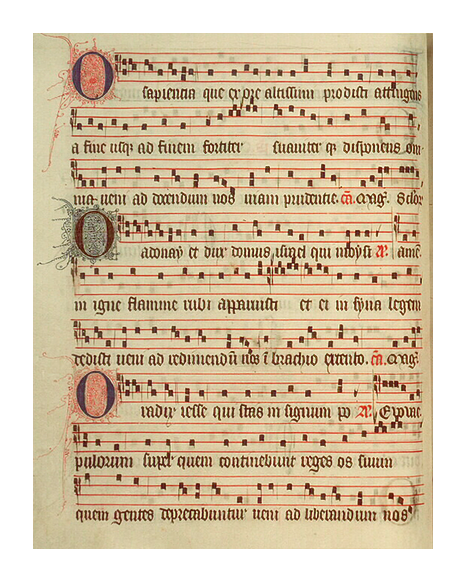 O sapientia que ex ore altissimi prodisti attingens
a fine usq; ad finem fortiter suaviter q; disponens om
nia veni ad docendum nos viam prudentie.
O adonay et dux domus israel qui
in igne flamme rubi apparuisti et ei in syna legem
dedisti veni ad redimendū nos ī brachio extento.
O radix iesse qui stas in signum po
pulorum super quem continebunt reges os suum
quem gentes deprecabuntur veni ad liberandum nos